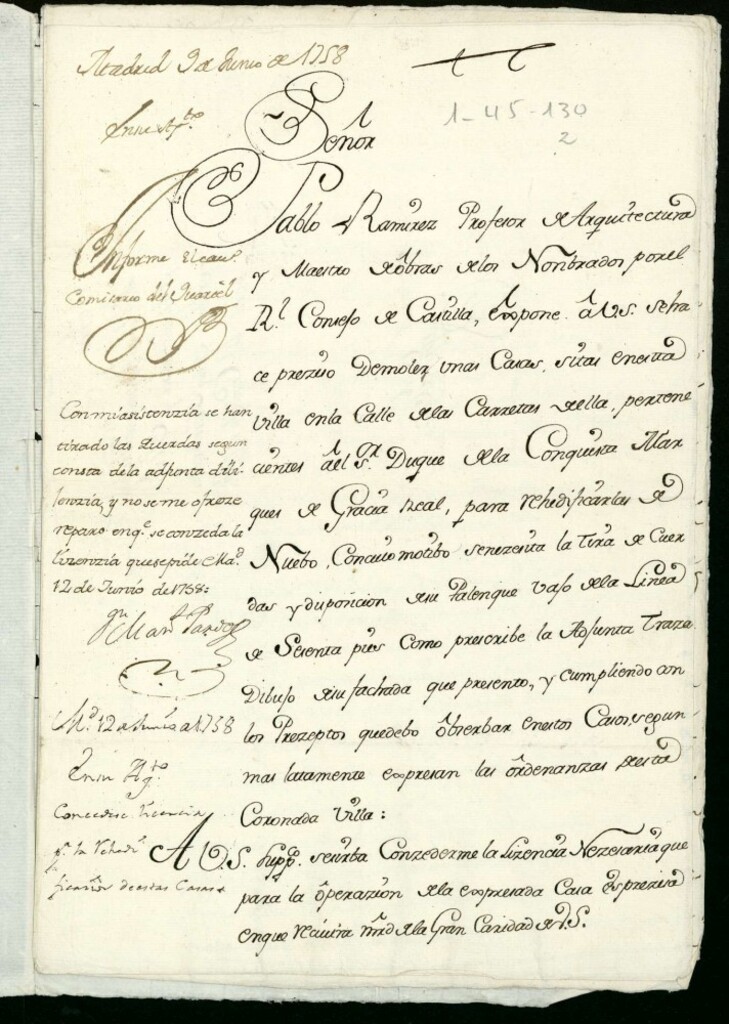 Madrid 9 de Junio de 1758
En su Ayto.
1-45-130
2
Señor
Pablo Ramirez Profesor de Arquitectura
y Maestro de obras de los Nombrados por el
Rl. Consejo de Castilla, expone â VS. se ha-
ce prezisso Demoler unas Casas, sitas en esta
Villa en la Calle de las Carretas de ella, pertene-
cientes âel Sor. Duque de la Conquista Mar
ques de Gracia Real, para rehedificarlas de
Nuebo, Con cuio motibo se nezesita la tira de Cuer
das y disposicion de su Palenque vaso de la Linea
de Sesenta pies Como prescribe la Adjunta Traza
Dibujo de su fachada que presento, y cumpliendo con
los Prezeptos que debo ôbserbar en estos Casos, segun
mas latamente expresan las ôrdenanzas de esta
Coronada Villa:
A VS. suppca. se sirba Conzederme la Lizencia Nezesaria que
para la ôperazion de la expresada Casa es prezisa
en que reciuira mrd de la Gran Caridad de V.S.
Informe el cavo.
Comisario del Quartel
Con mi asistenzia se han
tirado las Cuerdas segun
consta de la adjunta dili-
jenzia, y no se me ofreze
reparo en q.e se conzeda la
lizenzia que se pide Mad.
12 de Junio de 1758:
Md. 12 de Junio de 1758
En su Ayto.
Concedese licencia
pa. la rehedi
ficacion de estas Casas